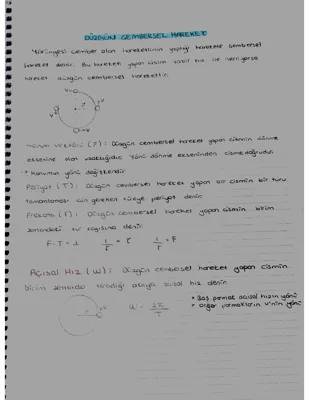 DÜZGÜN ÇEMBERSEL HAREKET
Yörüngesi çember olan hareketlinin yaptığı harekete çembersel
hareket denir. Bu hareketi yapan cisim sabit hız ile
hareket düzgün çembersel harekettir.
Konum Vektörü (r): Düzgün çembersel hareket yapan cismin dönme
eksenine olan uzaklığıdır. Yönü dönme ekseninden cisme doğrudur.
* Konumun yönü değişkendir
Periyot (T): Düzgün çembersel hareket yapan bir cismin bir turu
tamamlaması için gereken süreye periyot denir.
Frekans (f): Düzgün çembersel hareket yapan cismin birim
zamandaki tur sayısına denir.
F.T=1 1/F = T 1/T = F
Açısal Hız (W): Düzgün çembersel hareket yapan cismin
birim zamanda taradığı açıya açısal hız denir.
W = 2π/T
* Baş parmak açısal hızın yönü
* Diğer parmakların v'nin yönü